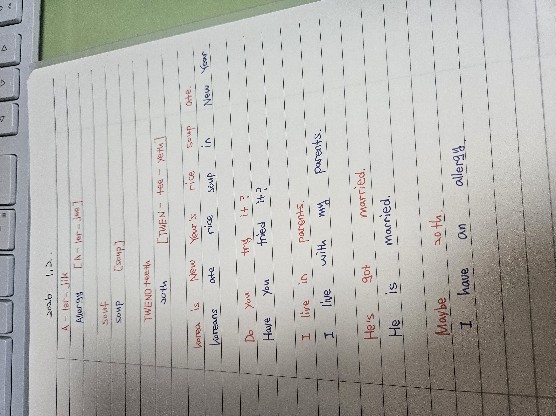 2026. 1. 2.
A - ler - jik
Allergy [A - ler - jee]
souf
soup [soup]
TWENO teeth
20th [TWEN - tee - yeth]
Korea is New Year's rice soup ate.
Koreans ate rice soup in New Year
Do you try it?
Have you tried it?
I live in parents.
I live with my parents.
He's got married.
He is married.
Maybe 20th.
I have an allergy.